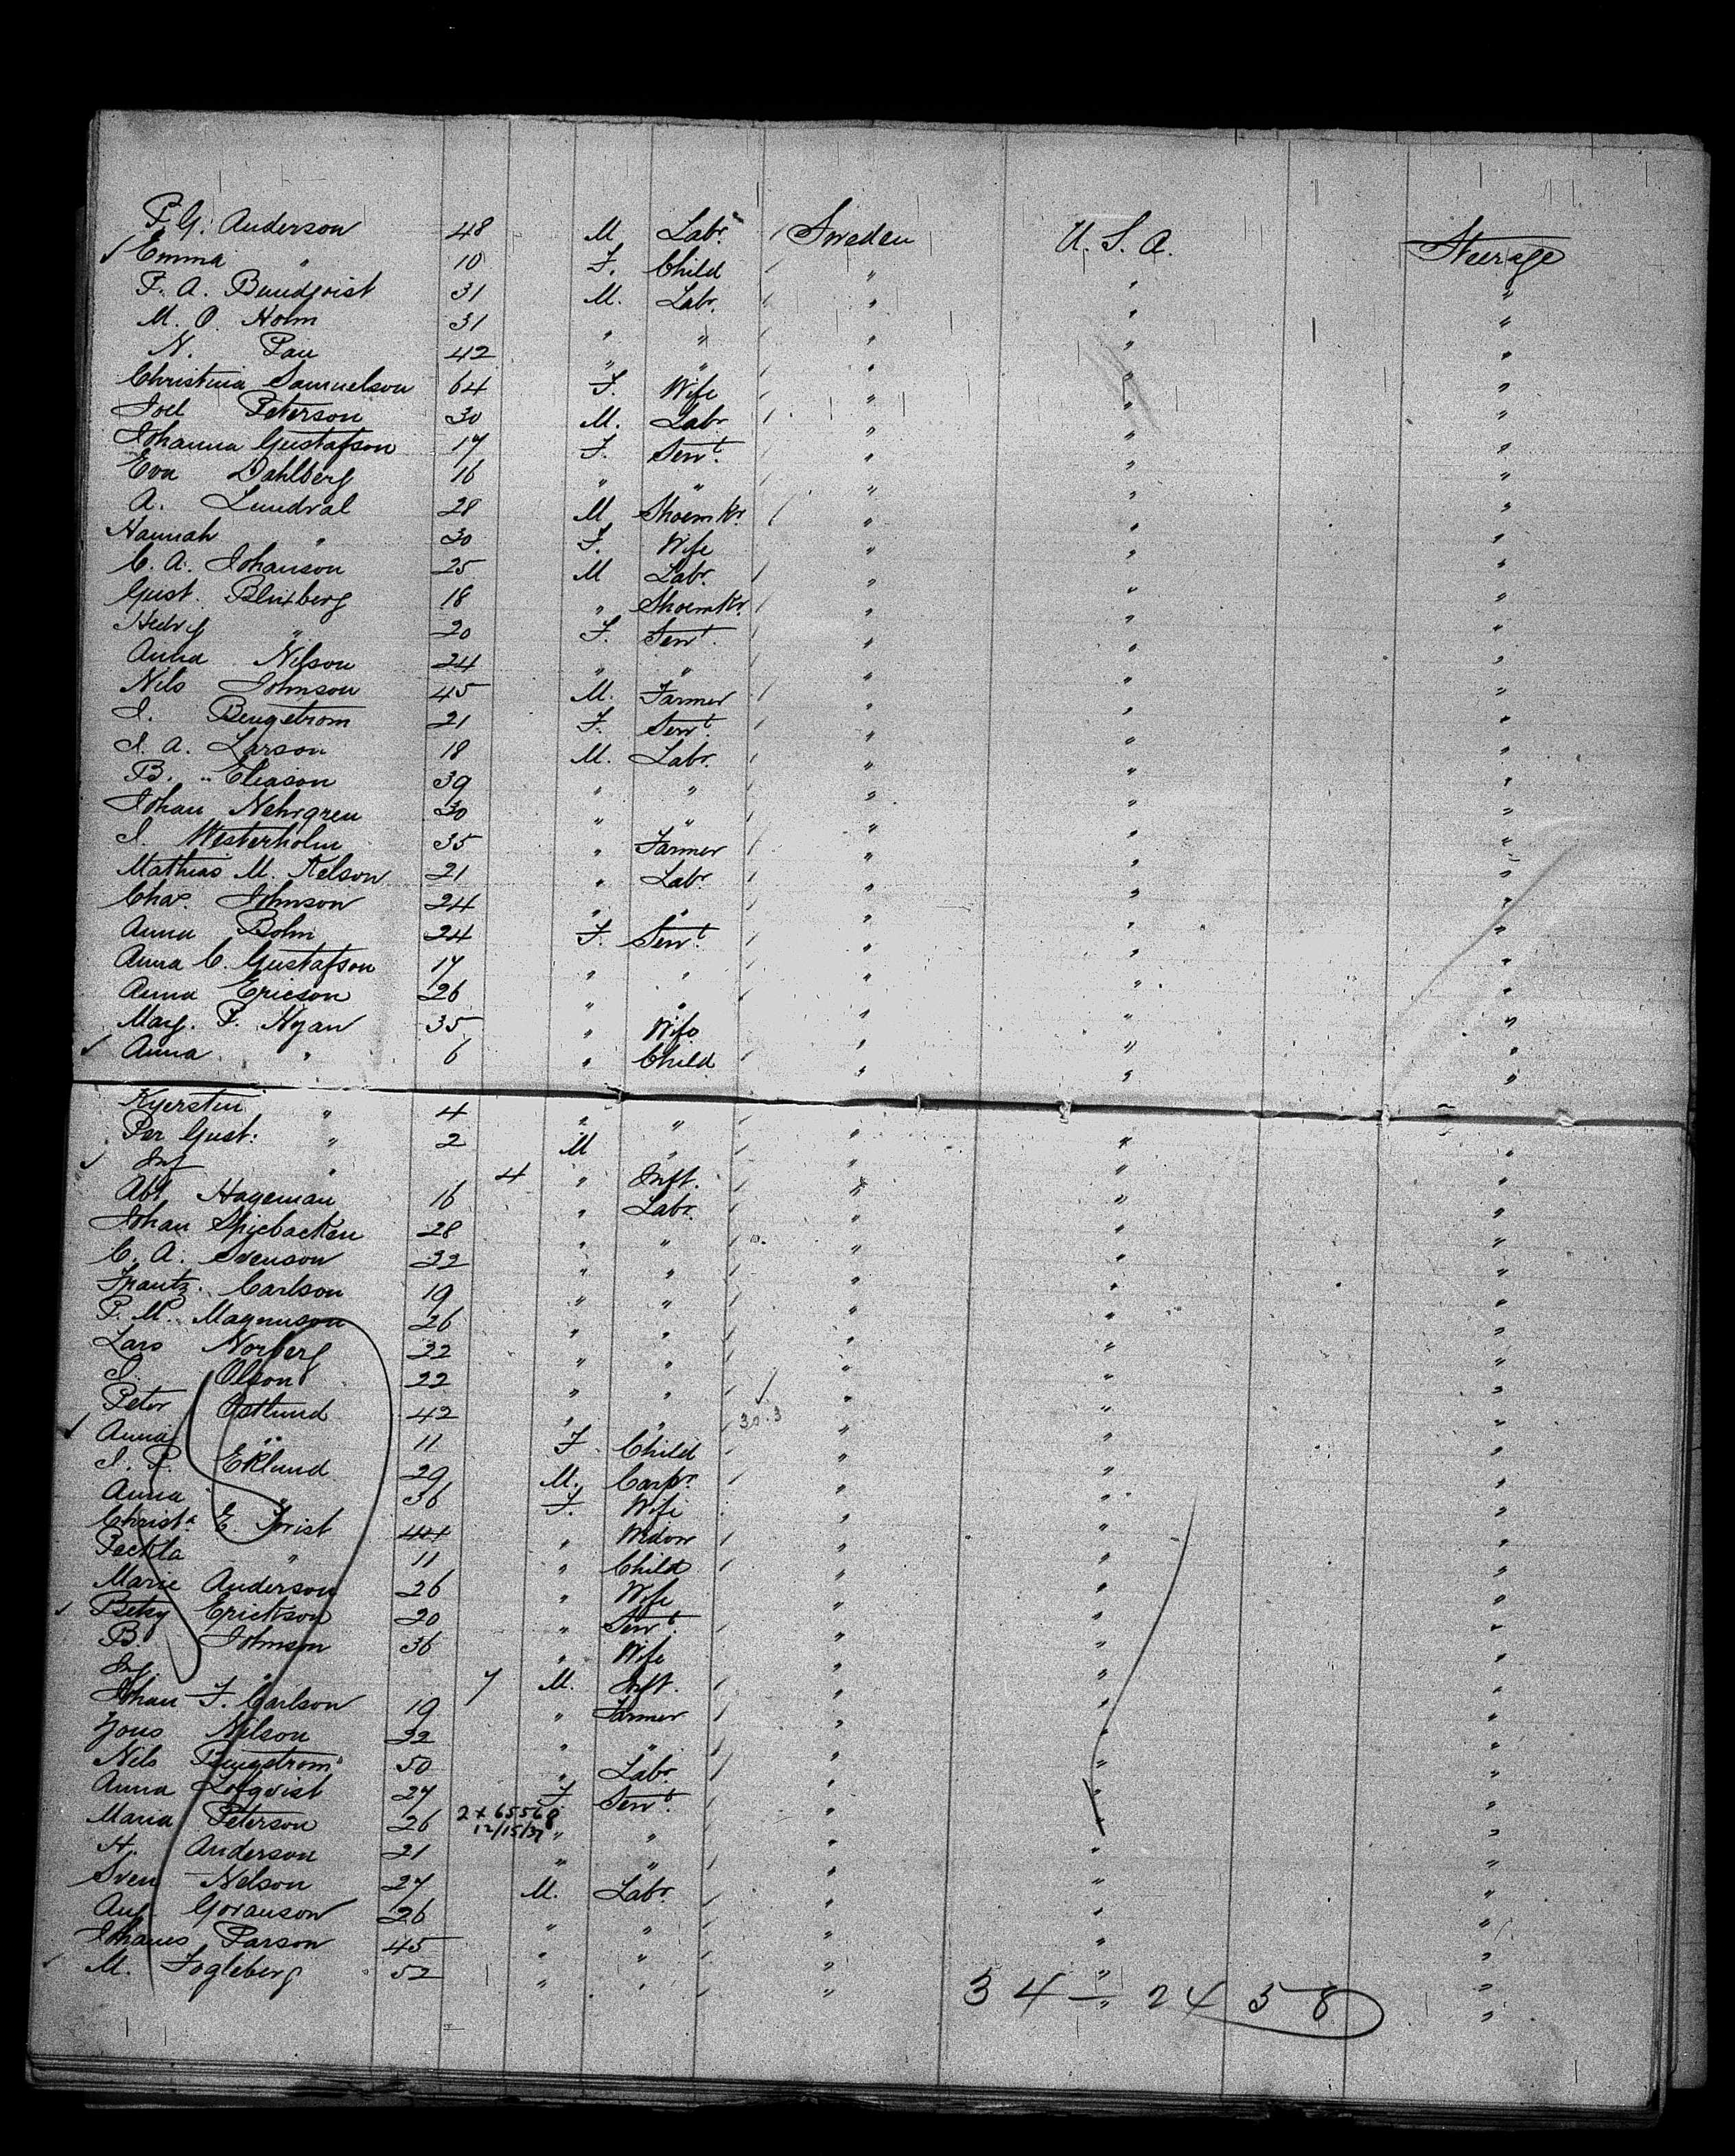 P. G. Anderson 48 M Labr. Sweden U. S. A. Steerage
Emma " 10 F. Child " " "
P. A. Bundqvist 31 M. Labr. " " "
M. O. Holm 31 " " " " "
N. Pau 42 " " " " "
Christina Samuelson 64 F. Wife " " "
Joel Peterson 30 M. Labr. " " "
Johanna Gustafson 17 F. Servt. " " "
Eva Dahlberg 16 " " " " "
A. Lundval 28 M Shoemkr. " " "
Hannah " 30 F. Wife " " "
C. A. Johanson 25 M Labr. " " "
Gust. Blixberg 18 " Shoemkr. " " "
Hedvig " 20 F. Servt. " " "
Anna Nilson 24 " " " " "
Nils Johnson 45 M. Farmer " " "
J. Bengstrom 21 F. Servt. " " "
J. A. Larson 18 M. Labr. " " "
B. Eliason 39 " " " " "
Johan Nehrgren 30 " " " " "
J. Westerholm 35 " Farmer " " "
Mathias M. Nelson 21 " Labr. " " "
Chas. Johnson 24 " " " " "
Anna Bohn 24 F. Servt. " " "
Anna C. Gustafson 17 " " " " "
Anna Ericson 26 " " " " "
Marg. P. Nyan 35 " Wife " " "
Anna " 6 " Child " " "
Kjersten " 4 " " " " "
Per Gust: " 2 M " " " "
Inf " 4 " Inft. " " "
Abr. Hageman 16 " Labr. " " "
Johan Spicbacken 28 " " " " "
C. A. Svenson 32 " " " " "
Frantz. Carlson 19 " " " " "
P. M. Magnuson 26 " " " " "
Lars Norberg 22 " " " " "
J. Olson 22 " " " " "
Peter Ostlund 42 " " " " "
Anna " 11 F. Child " " "
J. P. Eklund 29 M. Carpr. " " "
Anna " 36 F. Wife " " "
Christa. E. Qvist 44 " Widow " " "
11 " Child " " "
Marie Anderson 26 " Wife " " "
Betsy Erickson 20 " Servt. " " "
B. Johnson 36 " Wife " " "
Inf. " 7 M. Inft. " " "
Johan F. Carlson 19 " Farmer " " "
Jons Nilson 32 " " " " "
Nils Bengstrom 50 " Labr. " " "
Anna Lofqvist 27 F Servt. " " "
Maria Peterson 26 2x65568 12/15/37 " " " " "
H. Anderson 21 " " " " "
Sven Nelson 27 M. Labr. " " "
Aug. Goranson 26 " " " " "
Johanes Parson 45 " " " " "
M. Fogleberg 52 " " " " "
34 — 2458